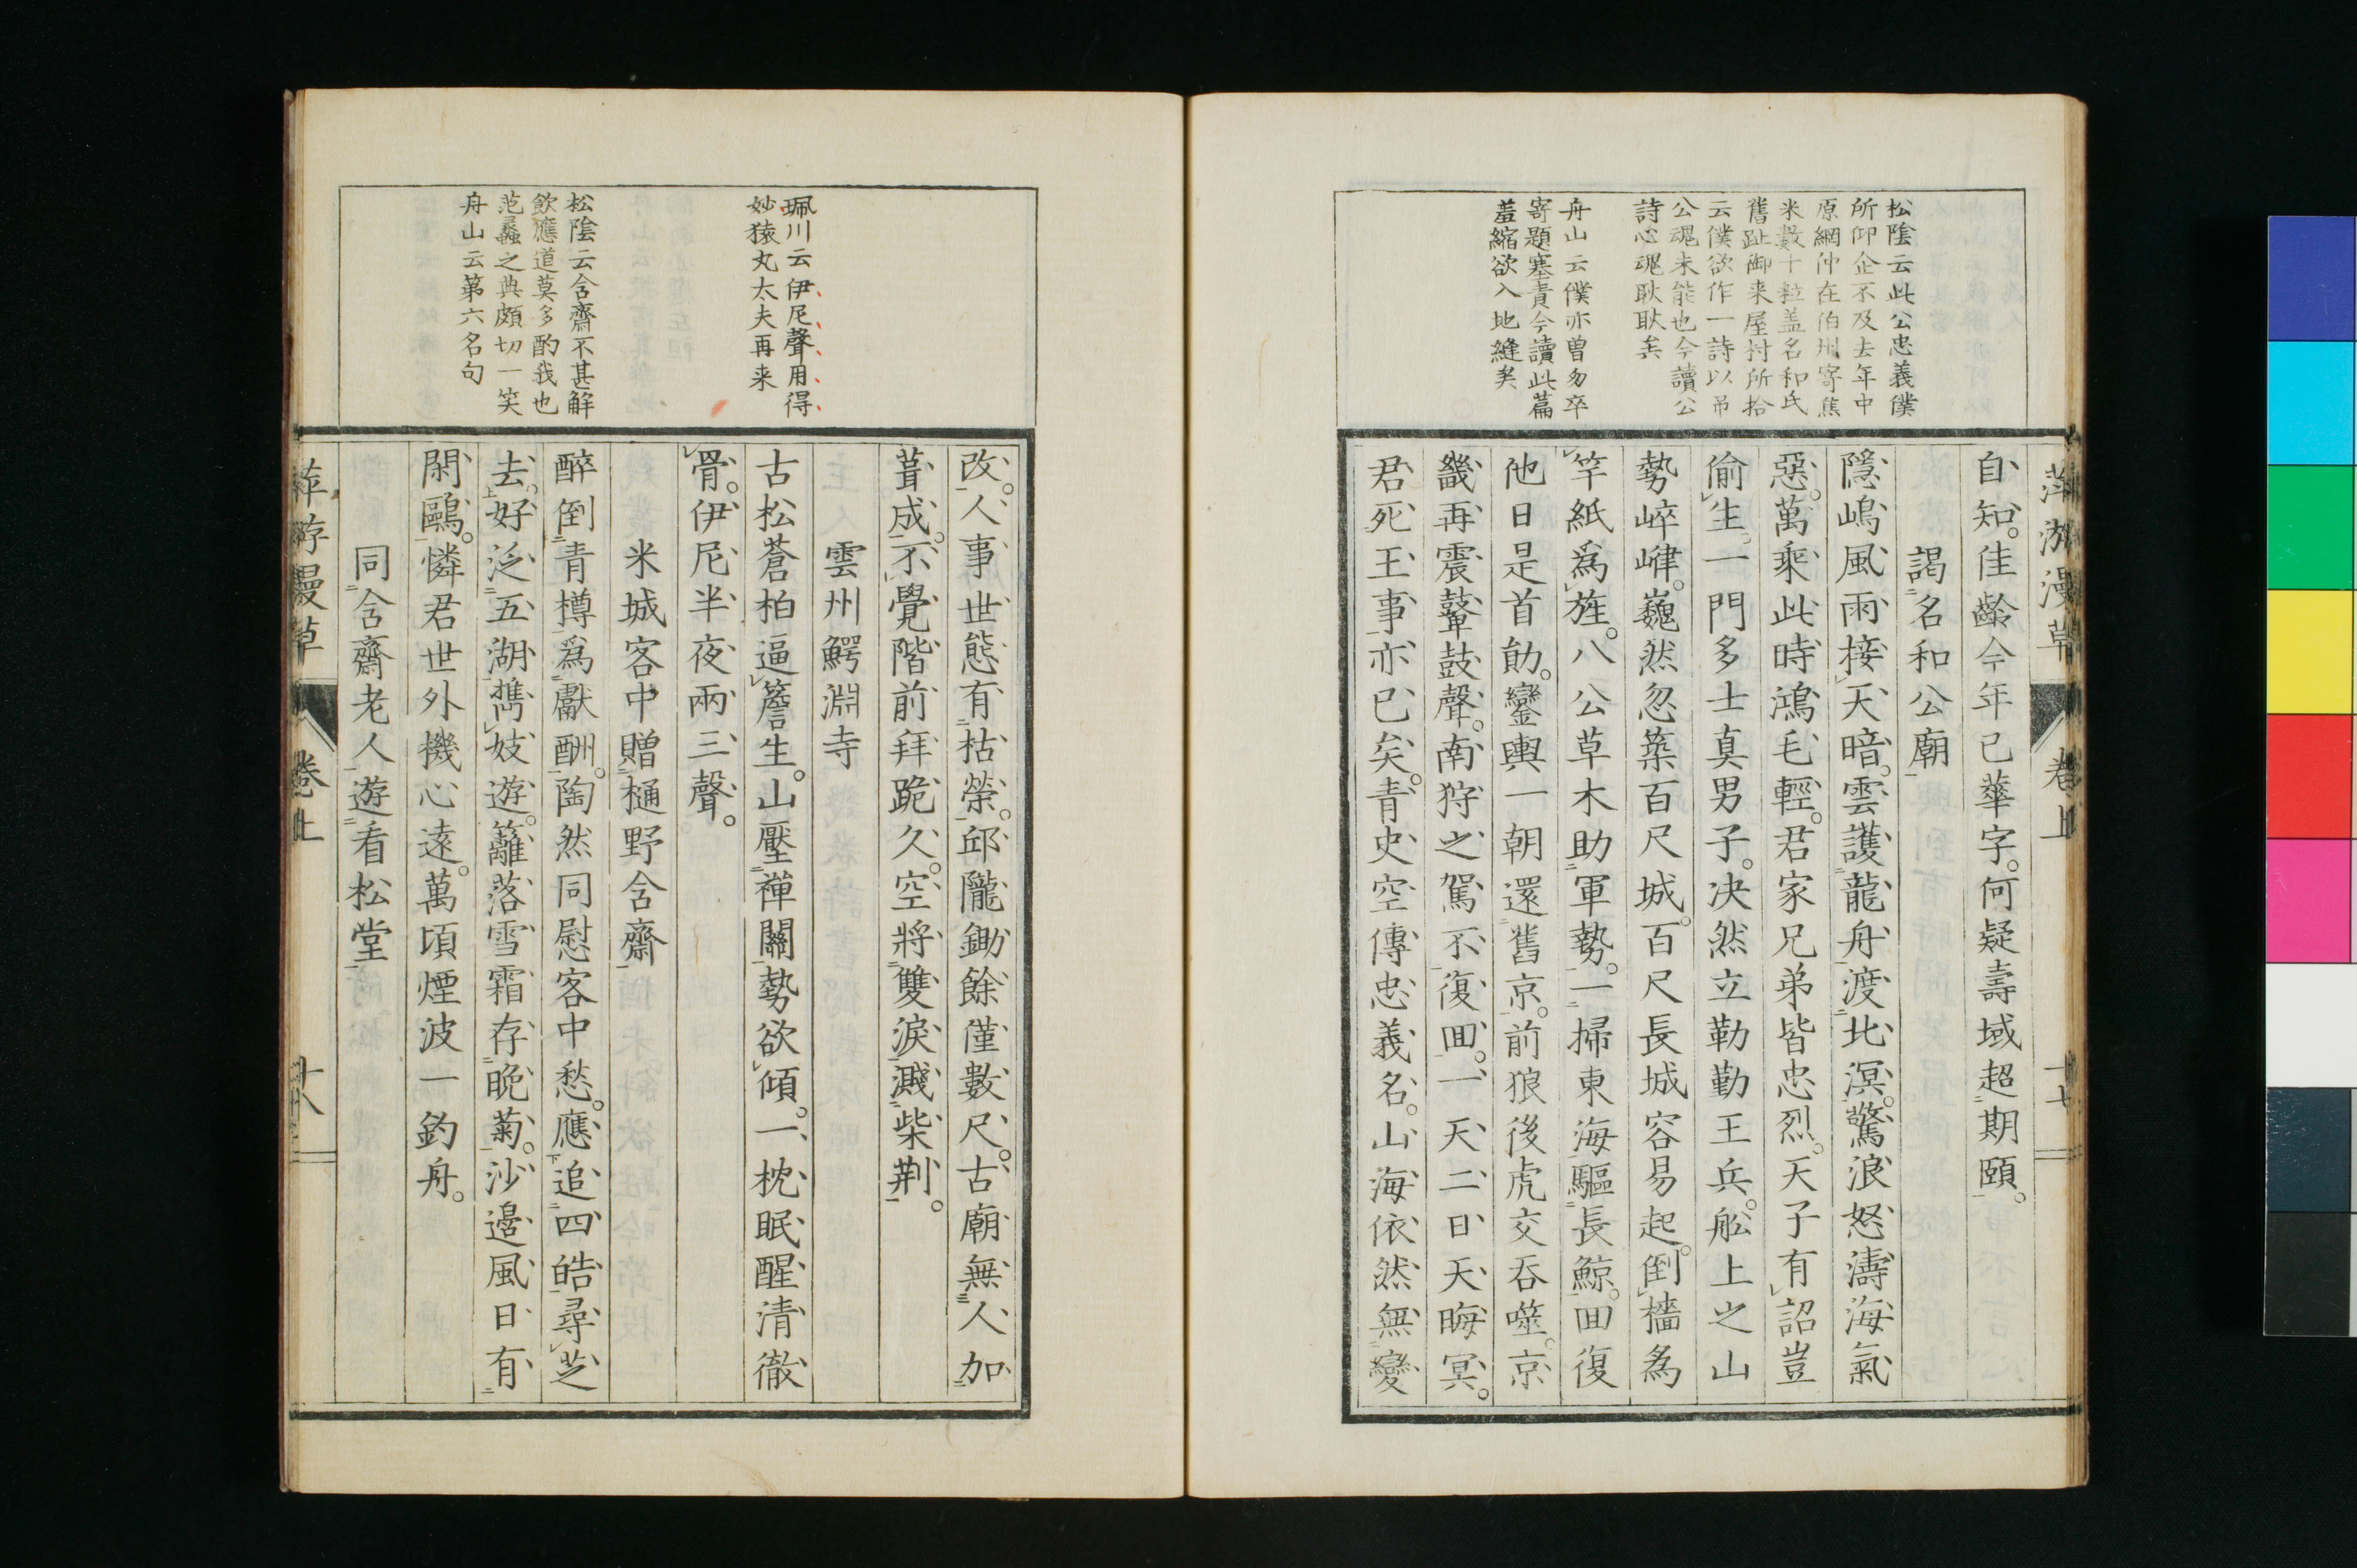 松陰云此公忠義僕
所仰企不及去年中
原網仲在伯州寄蕉
米數十粒盖名和氏
舊趾御来屋村所拾
云僕欲作一詩以吊
公魂未能也今讀公
詩心魂耿耿矣
舟山云僕亦曽匆卒
寄題塞責今讀此篇
羞縮欲入地縫矣
萍游漫草 卷上 十七
自知。佳齡今年已華字。何疑壽域超期頤。
謁名和公廟
隱嶋風雨接天暗。雲護龍舟渡北溟。驚浪怒濤海氣
惡。萬乘此時鴻毛輕。君家兄弟皆忠烈。天子有詔豈
偷生。一門多士真男子。决然立勒勤王兵。舩上之山
勢崪嵂。巍然忽築百尺城。百尺長城容易起。倒檣為
竿紙爲旌。八公草木助軍勢。一掃東海驅長鯨。回復
他日是首勛。鑾輿一朝還舊京。前狼後虎交吞噬。京
畿再震鼙鼓聲。南狩之駕不復回。一天二日天晦冥。
君死王事亦已矣。青史空傳忠義名。山海依然無變
珮川云伊尼聲用得
妙猿丸太夫再来
松陰云含齋不甚解
飲應道莫多酌我也
范蠡之典頗切一笑
舟山云第六名句
改。人事世態有枯榮。邱隴鋤餘僅數尺。古廟無人加
葺成。不覺階前拜跪久。空將雙淚濺柴荆。
雲州鰐淵寺
古松蒼柏逼簷生。山壓禪關勢欲傾。一枕眠醒清徹
骨。伊尼半夜兩三聲。
米城客中贈樋野含齋
醉倒青樽爲獻酬。陶然同慰客中愁。應追四皓尋芝
去。好泛五湖擕妓遊。籬落雪霜存晩菊。沙邊風日有
閑鷗。憐君世外機心遠。萬頃煙波一釣舟。
同含齋老人遊看松堂
萍游漫草 卷上 十八